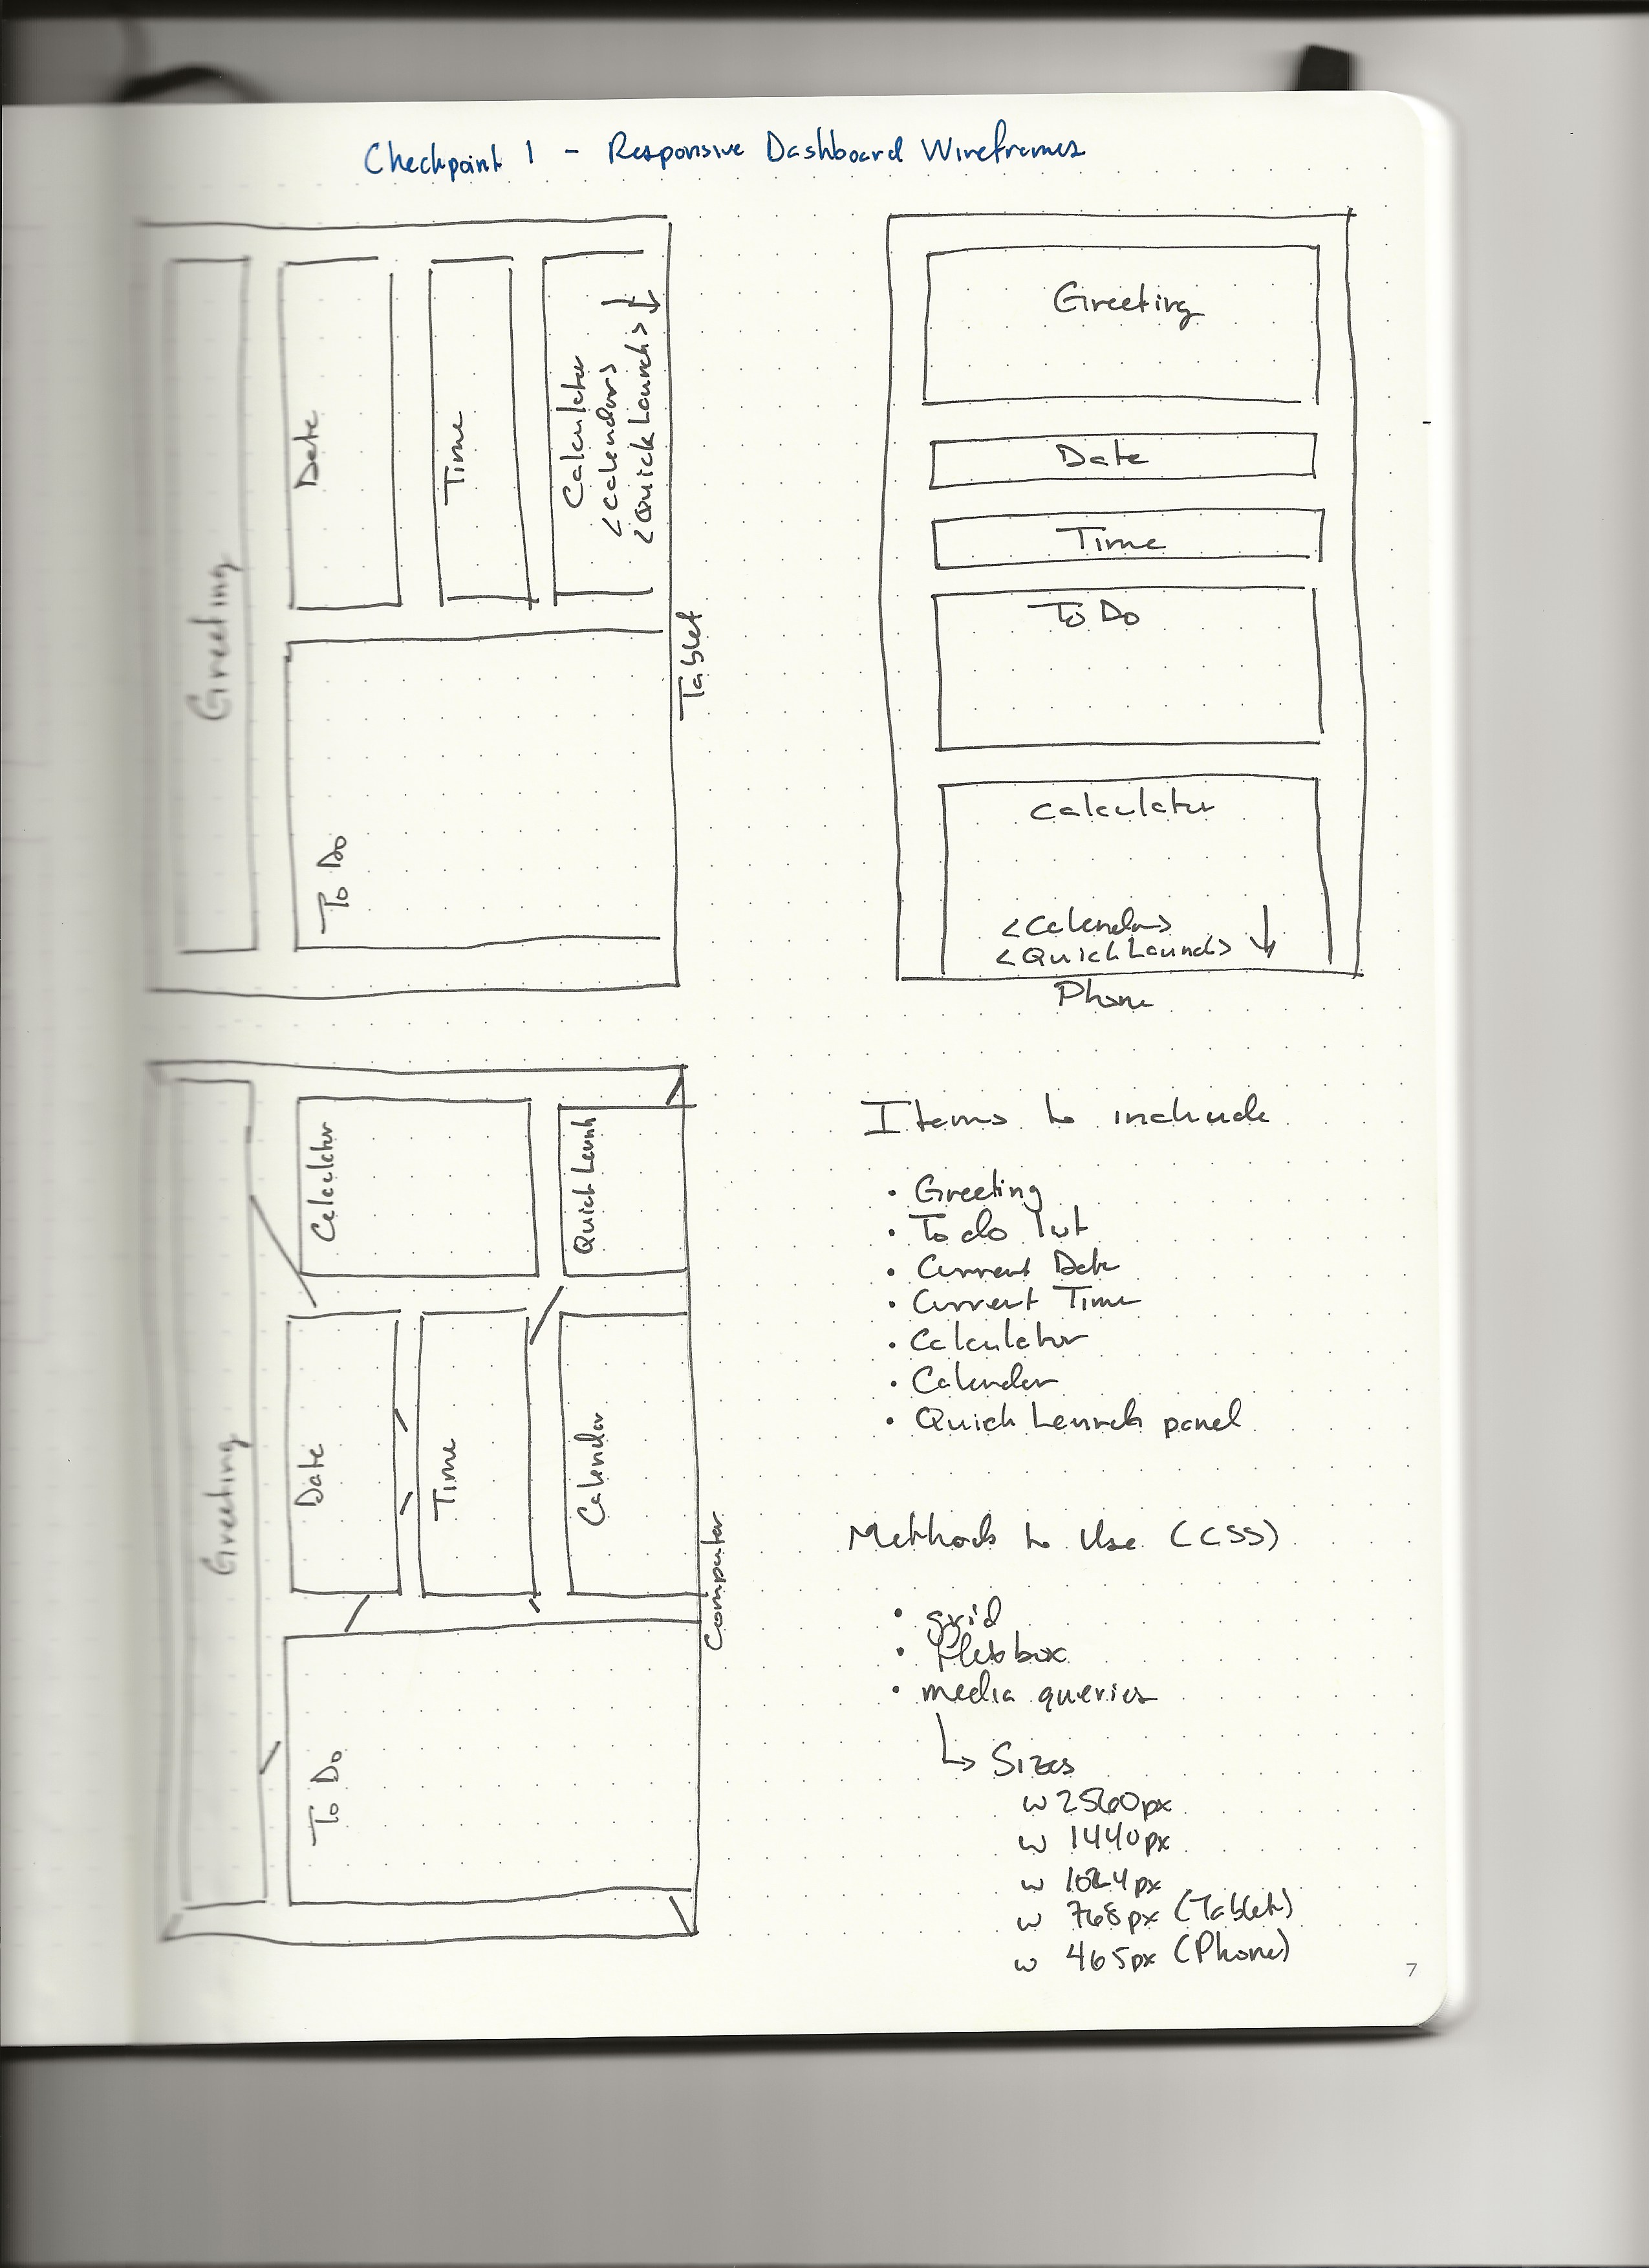 Checkpoint 1 - Responsive Dashboard Wireframes
Greeting
Date
Time
Calculator
<Calendar>
<Quick Launch>
To Do
Tablet
Greeting
Date
Time
To Do
Calculator
<Calendar>
<Quick Launch>
Phone
Greeting
Calculator
Quick Launh
Date
Time
Calendar
To Do
Computer
Items to include
• Greeting
• To do list
• Current Date
• Current Time
• Calculator
• Calendar
• Quick Launch panel
Methods to Use (CSS)
• grid
• Flexbox
• media queries
Sizes
w 2560px
w 1440px
w 1024px
w 768px (Tablet)
w 465px (Phone)
7